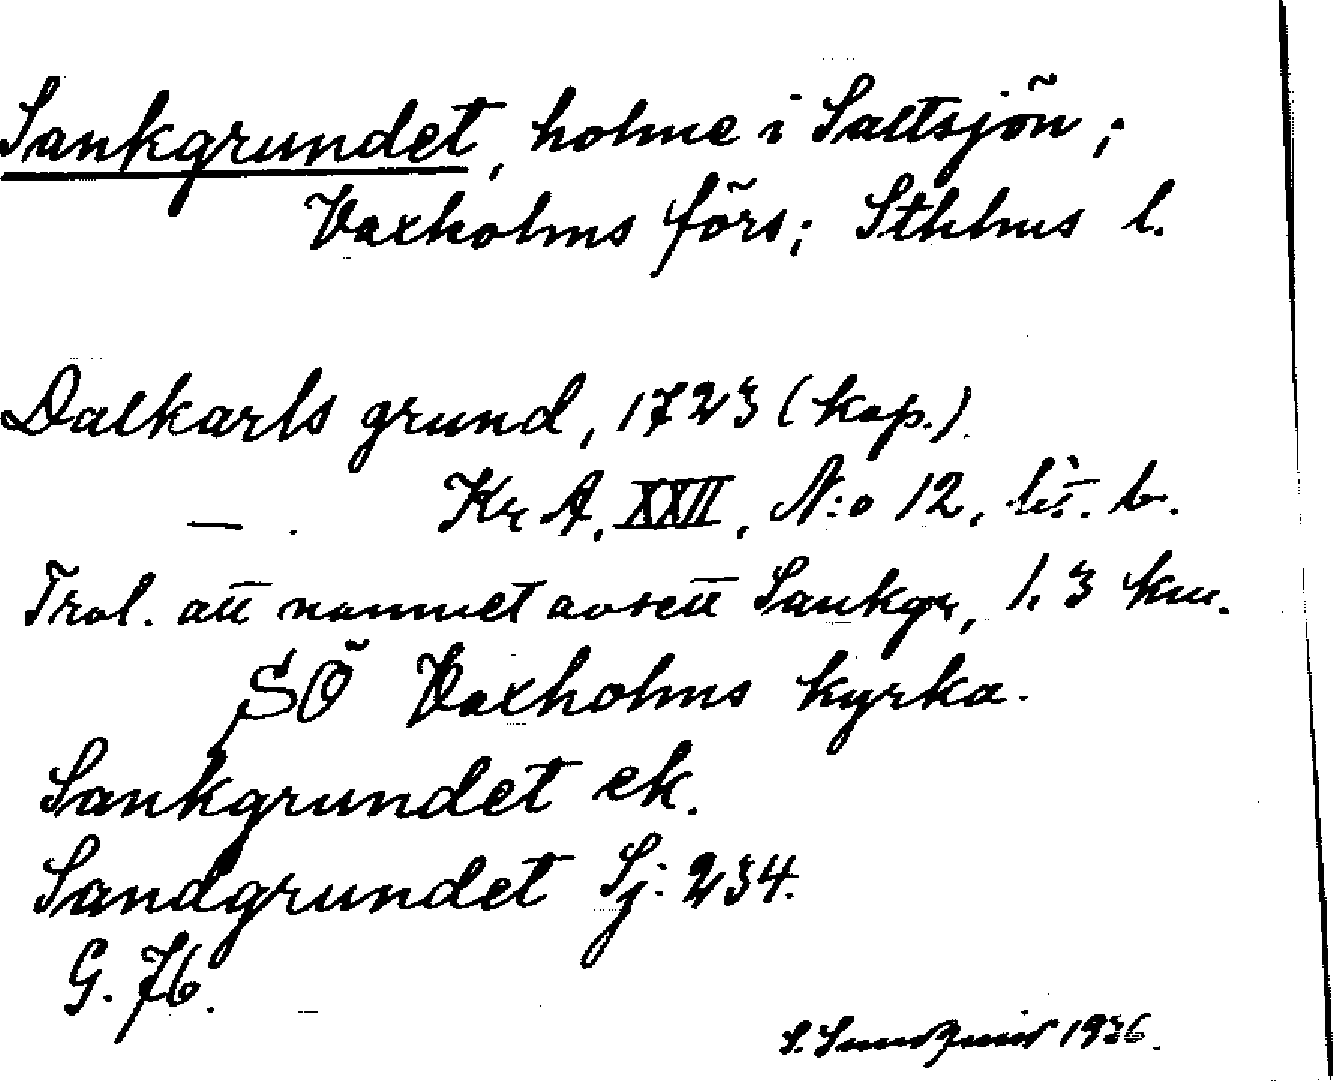 Sankgrundet, holme i Saltsjön;
Vaxholms förs; Sthlms l.
Dalkarls grund, 1723 (kop.)
— . Kr A, XXII, N:o 12, lit. b.
Trol. att namnet avsett Sankgr, 1.3 km.
SÖ Vaxholms kyrka.
Sankgrundet ek.
Sandgrundet Sj: 234.
G. 76.
S. Sundquist 1936.